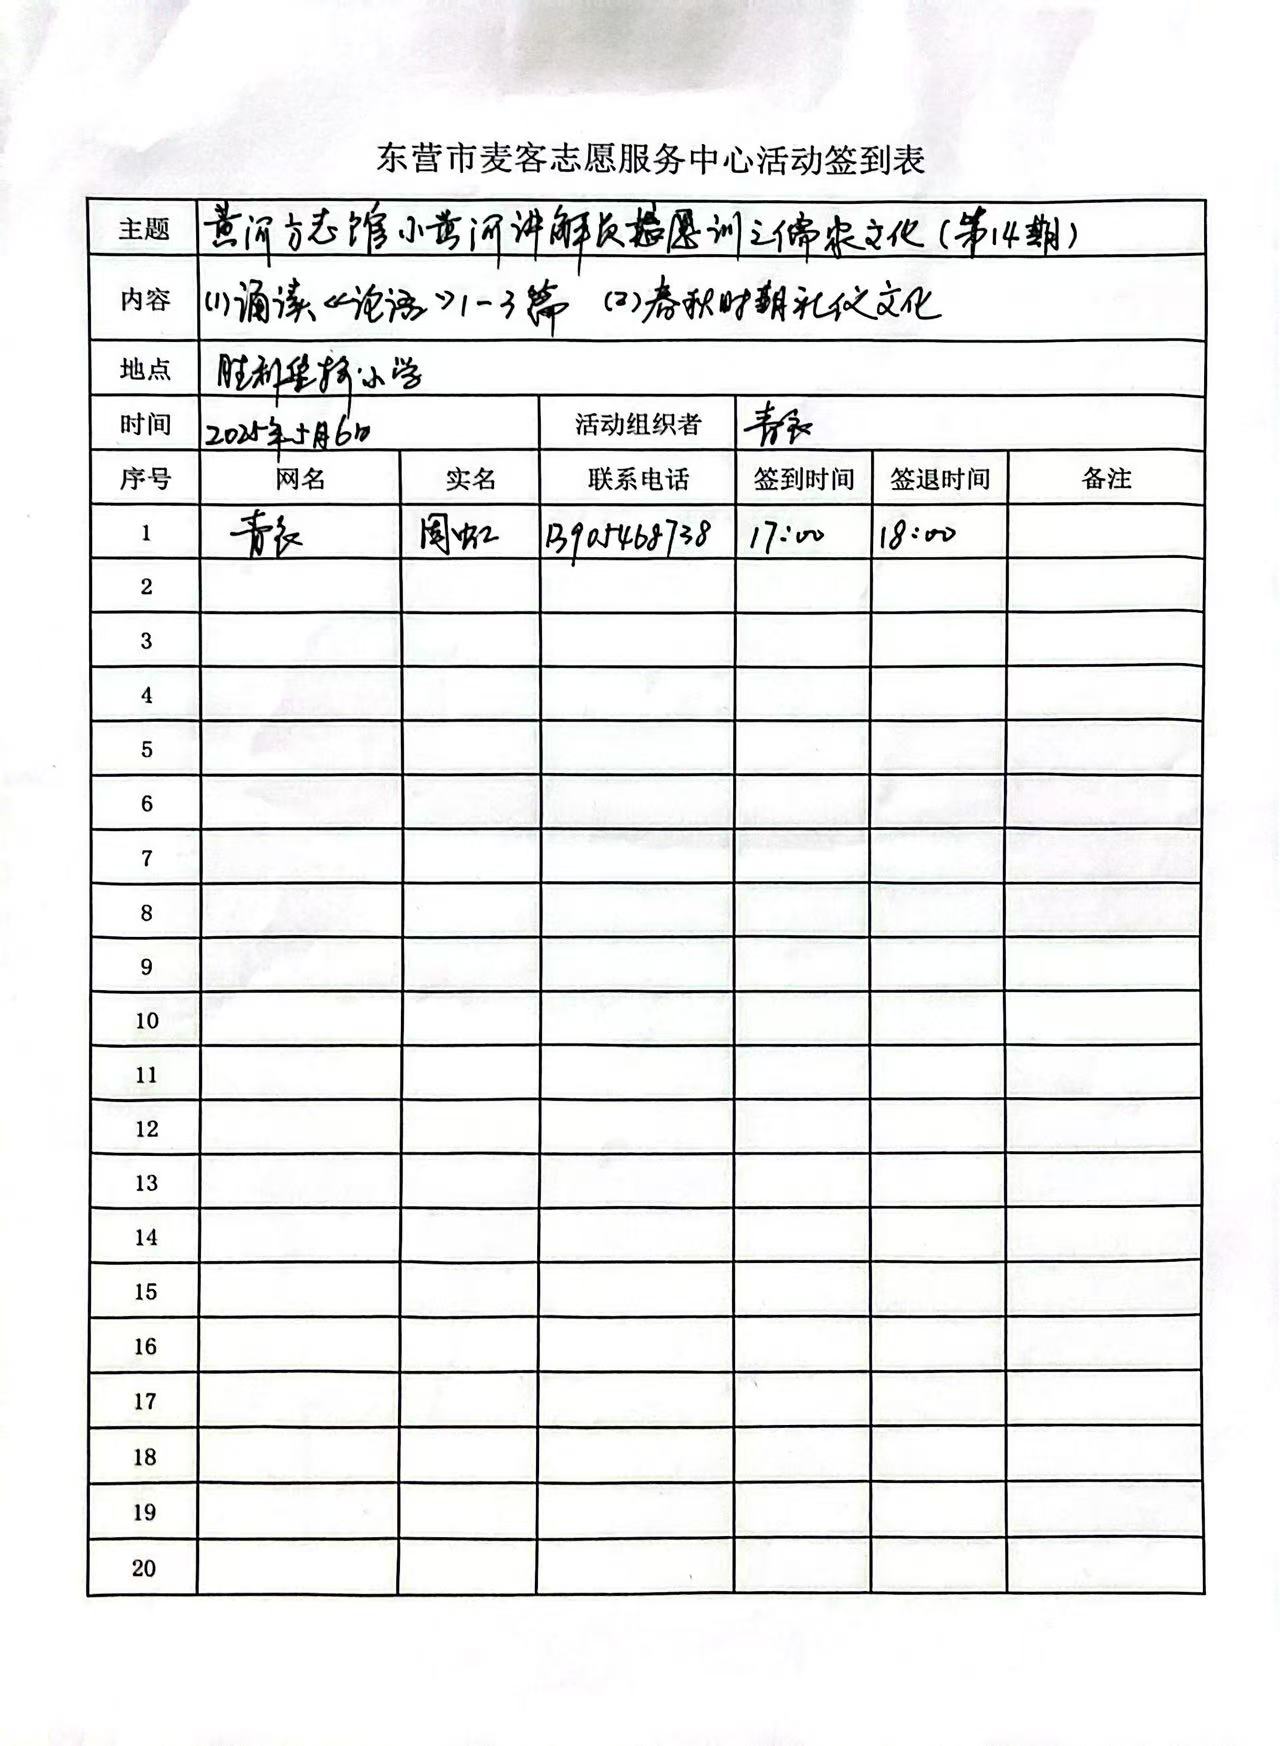 东营市麦客志愿服务中心活动签到表
主题 黄河方志馆小黄河讲解员培训之儒家文化(第14期)
内容 (1)诵读《论语》1-3篇 (2)春秋时期礼仪文化
地点 胜利 小学
时间 2025年5月6日 活动组织者 青衣
序号 网名 实名 联系电话 签到时间 签退时间 备注
1 青衣 周虹 13905468738 17:00 18:00
2
3
4
5
6
7
8
9
10
11
12
13
14
15
16
17
18
19
20